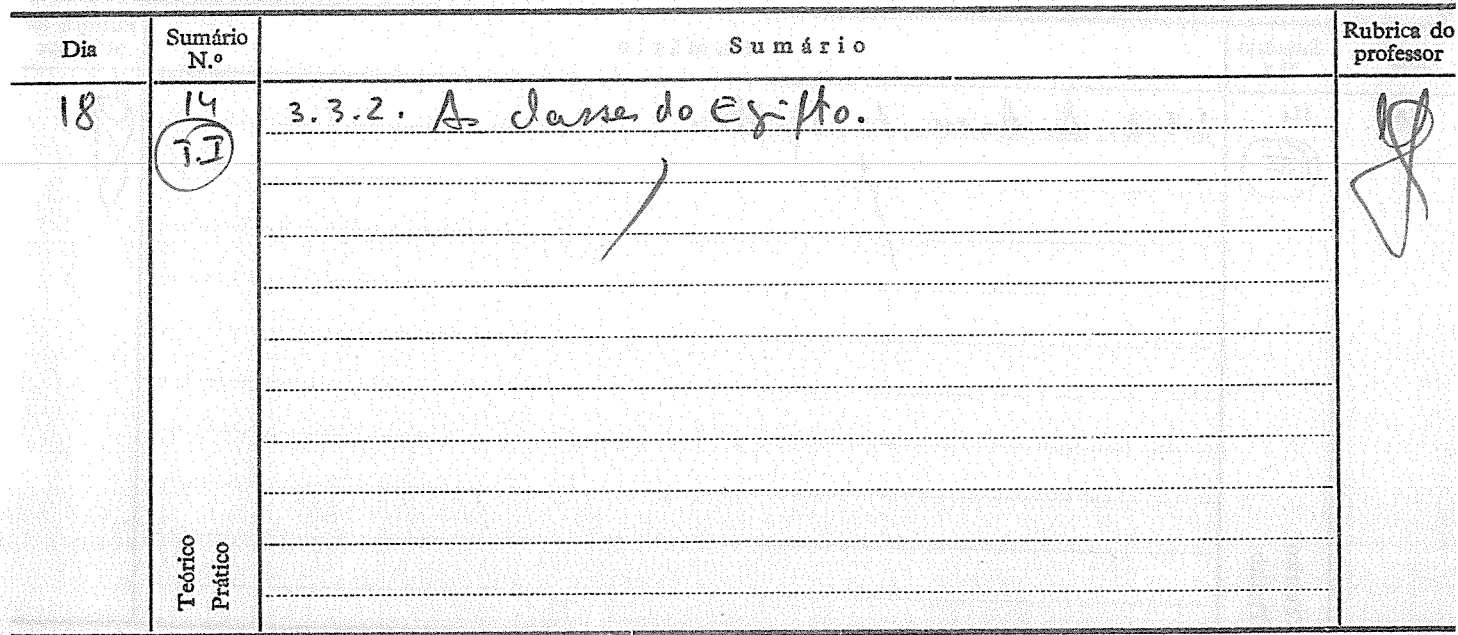 Dia Sumário N.º Sumário Rubrica do professor
18 14 3.3.2. As classes do Egipto.
T.I
Teórico
Prático